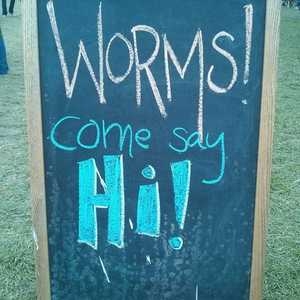 WORMS!
Come say
Hi!